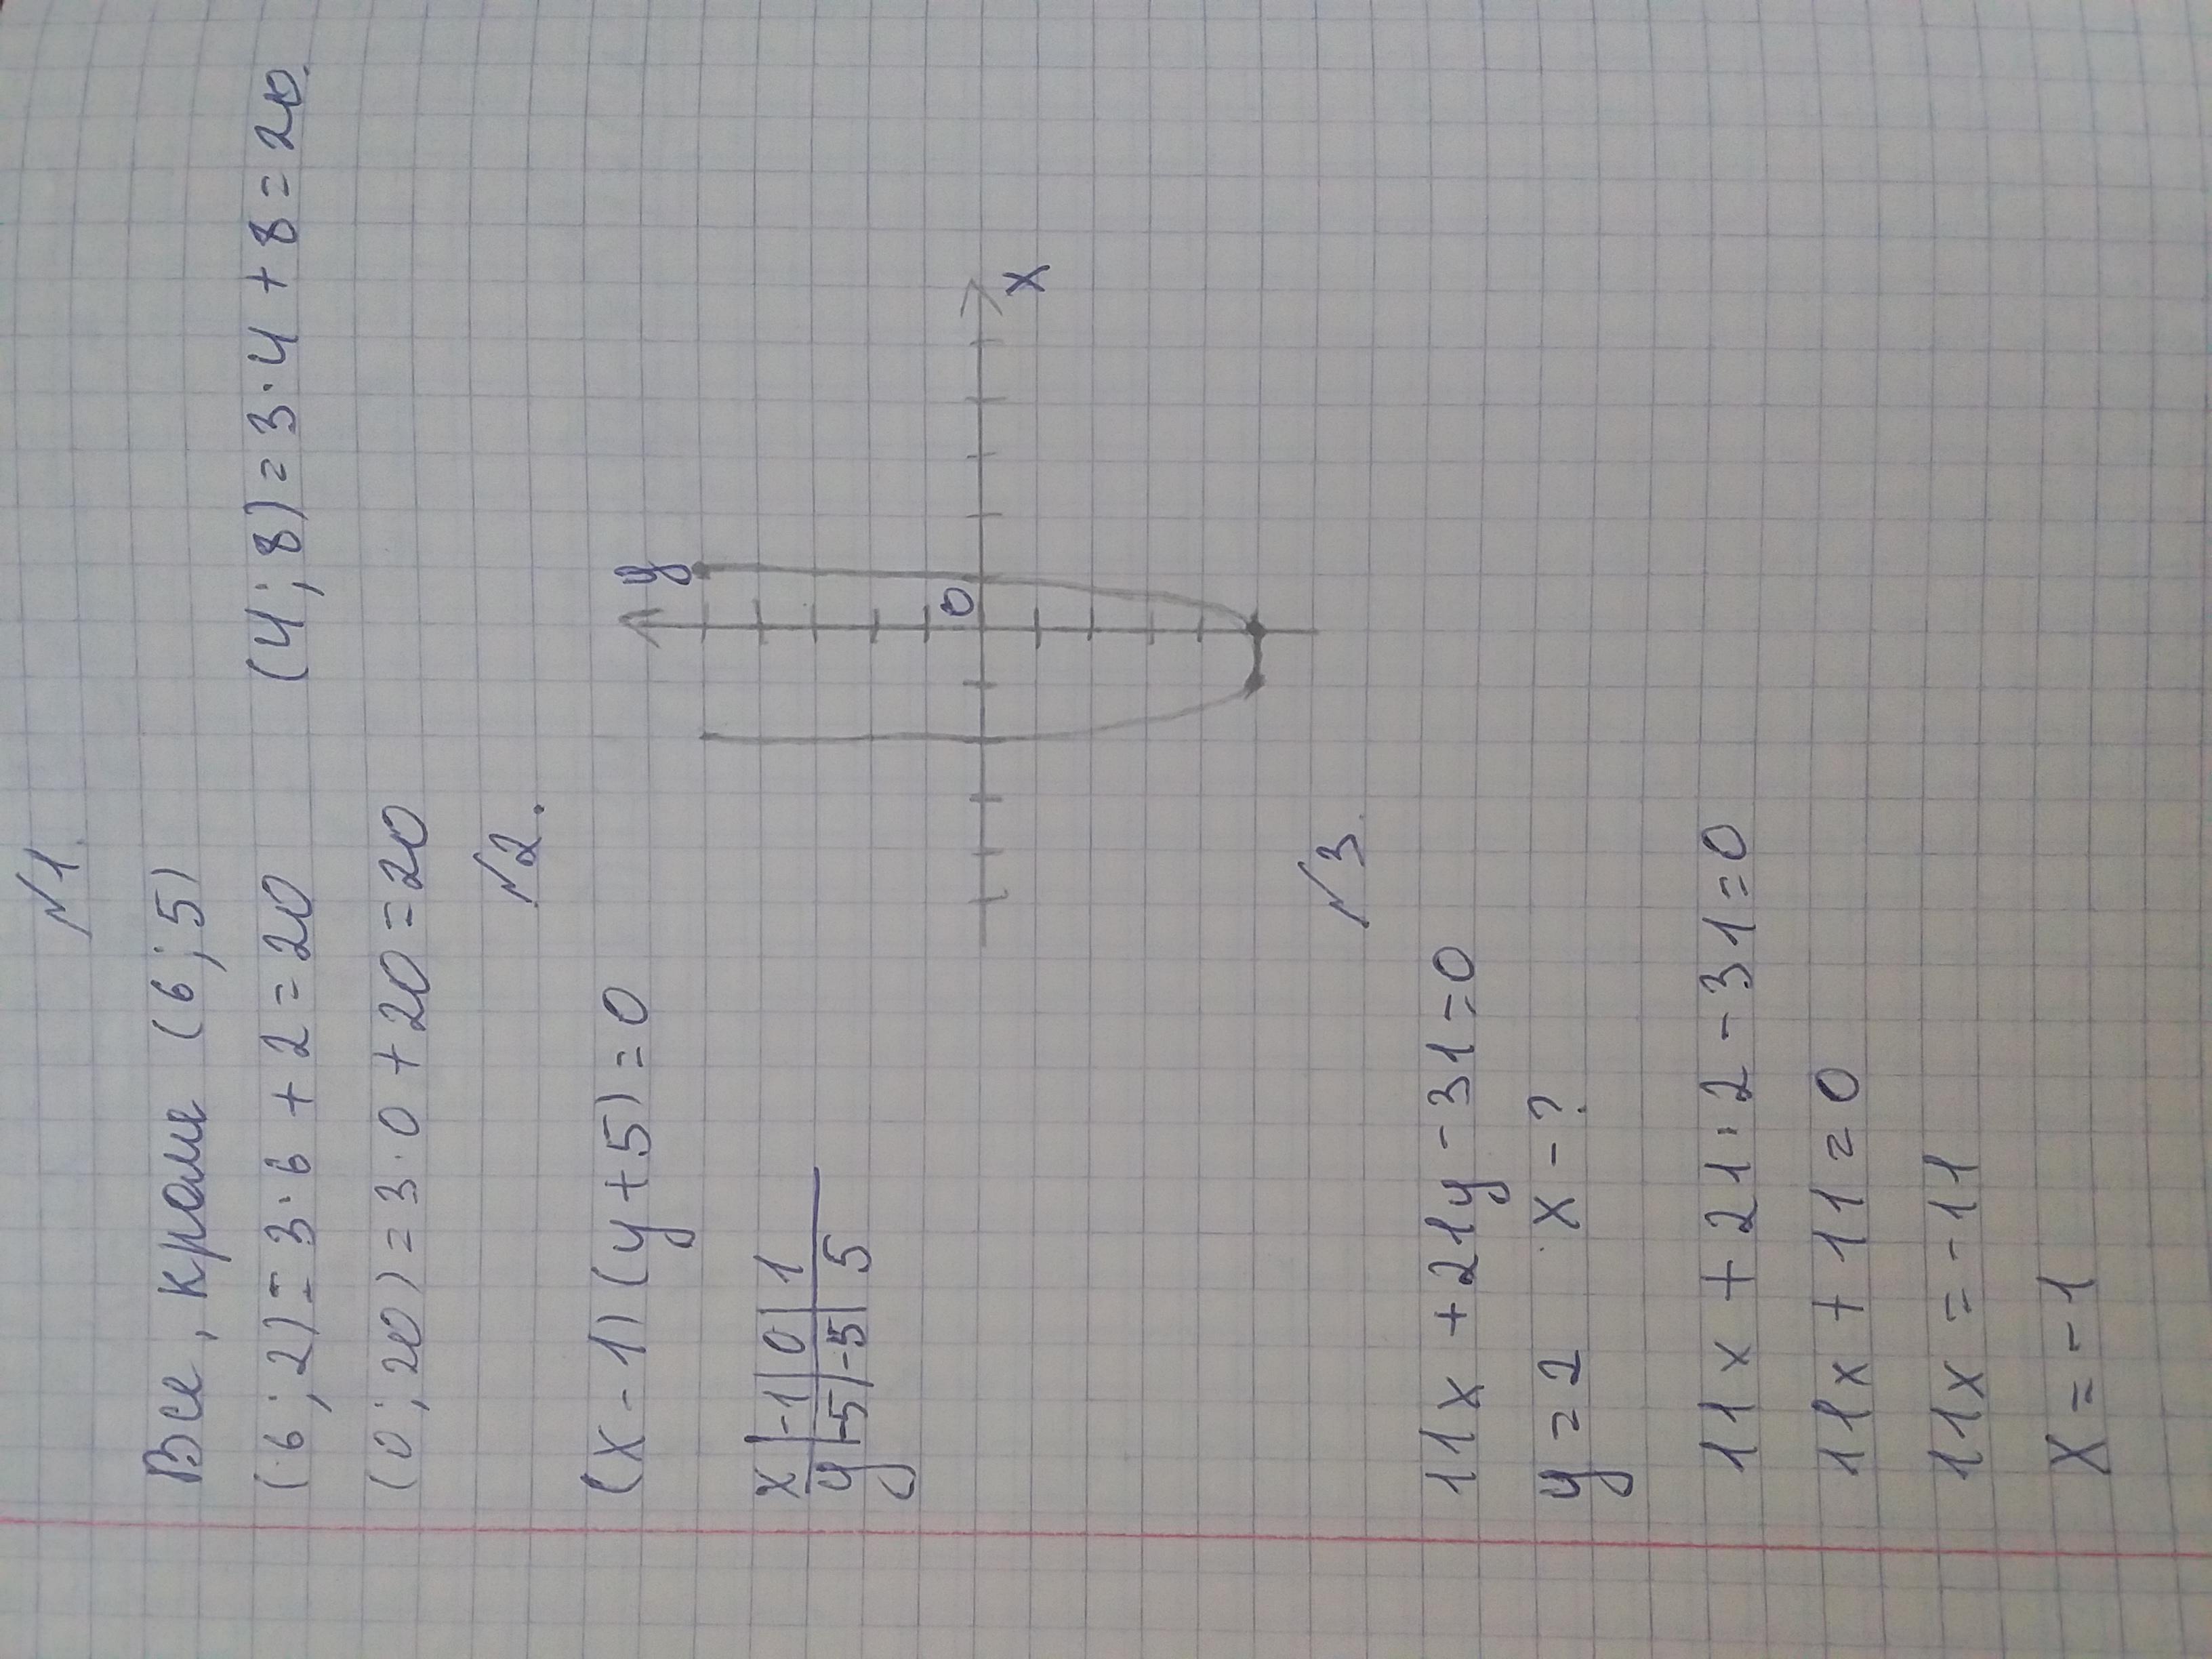 №1.
Все, кроме (6; 5)
(6; 2) = 3·6 + 2 = 20 (4; 8) = 3·4 + 8 = 20.
(0; 20) = 3·0 + 20 = 20
№2.
(x - 1) (y + 5) = 0
x | -1 | 0 | 1
y | -5 | -5 | 5
y
0
x
№3.
11x + 21y - 31 = 0
y = 2 x - ?
11x + 21·2 - 31 = 0
11x + 11 = 0
11x = -11
x = -1